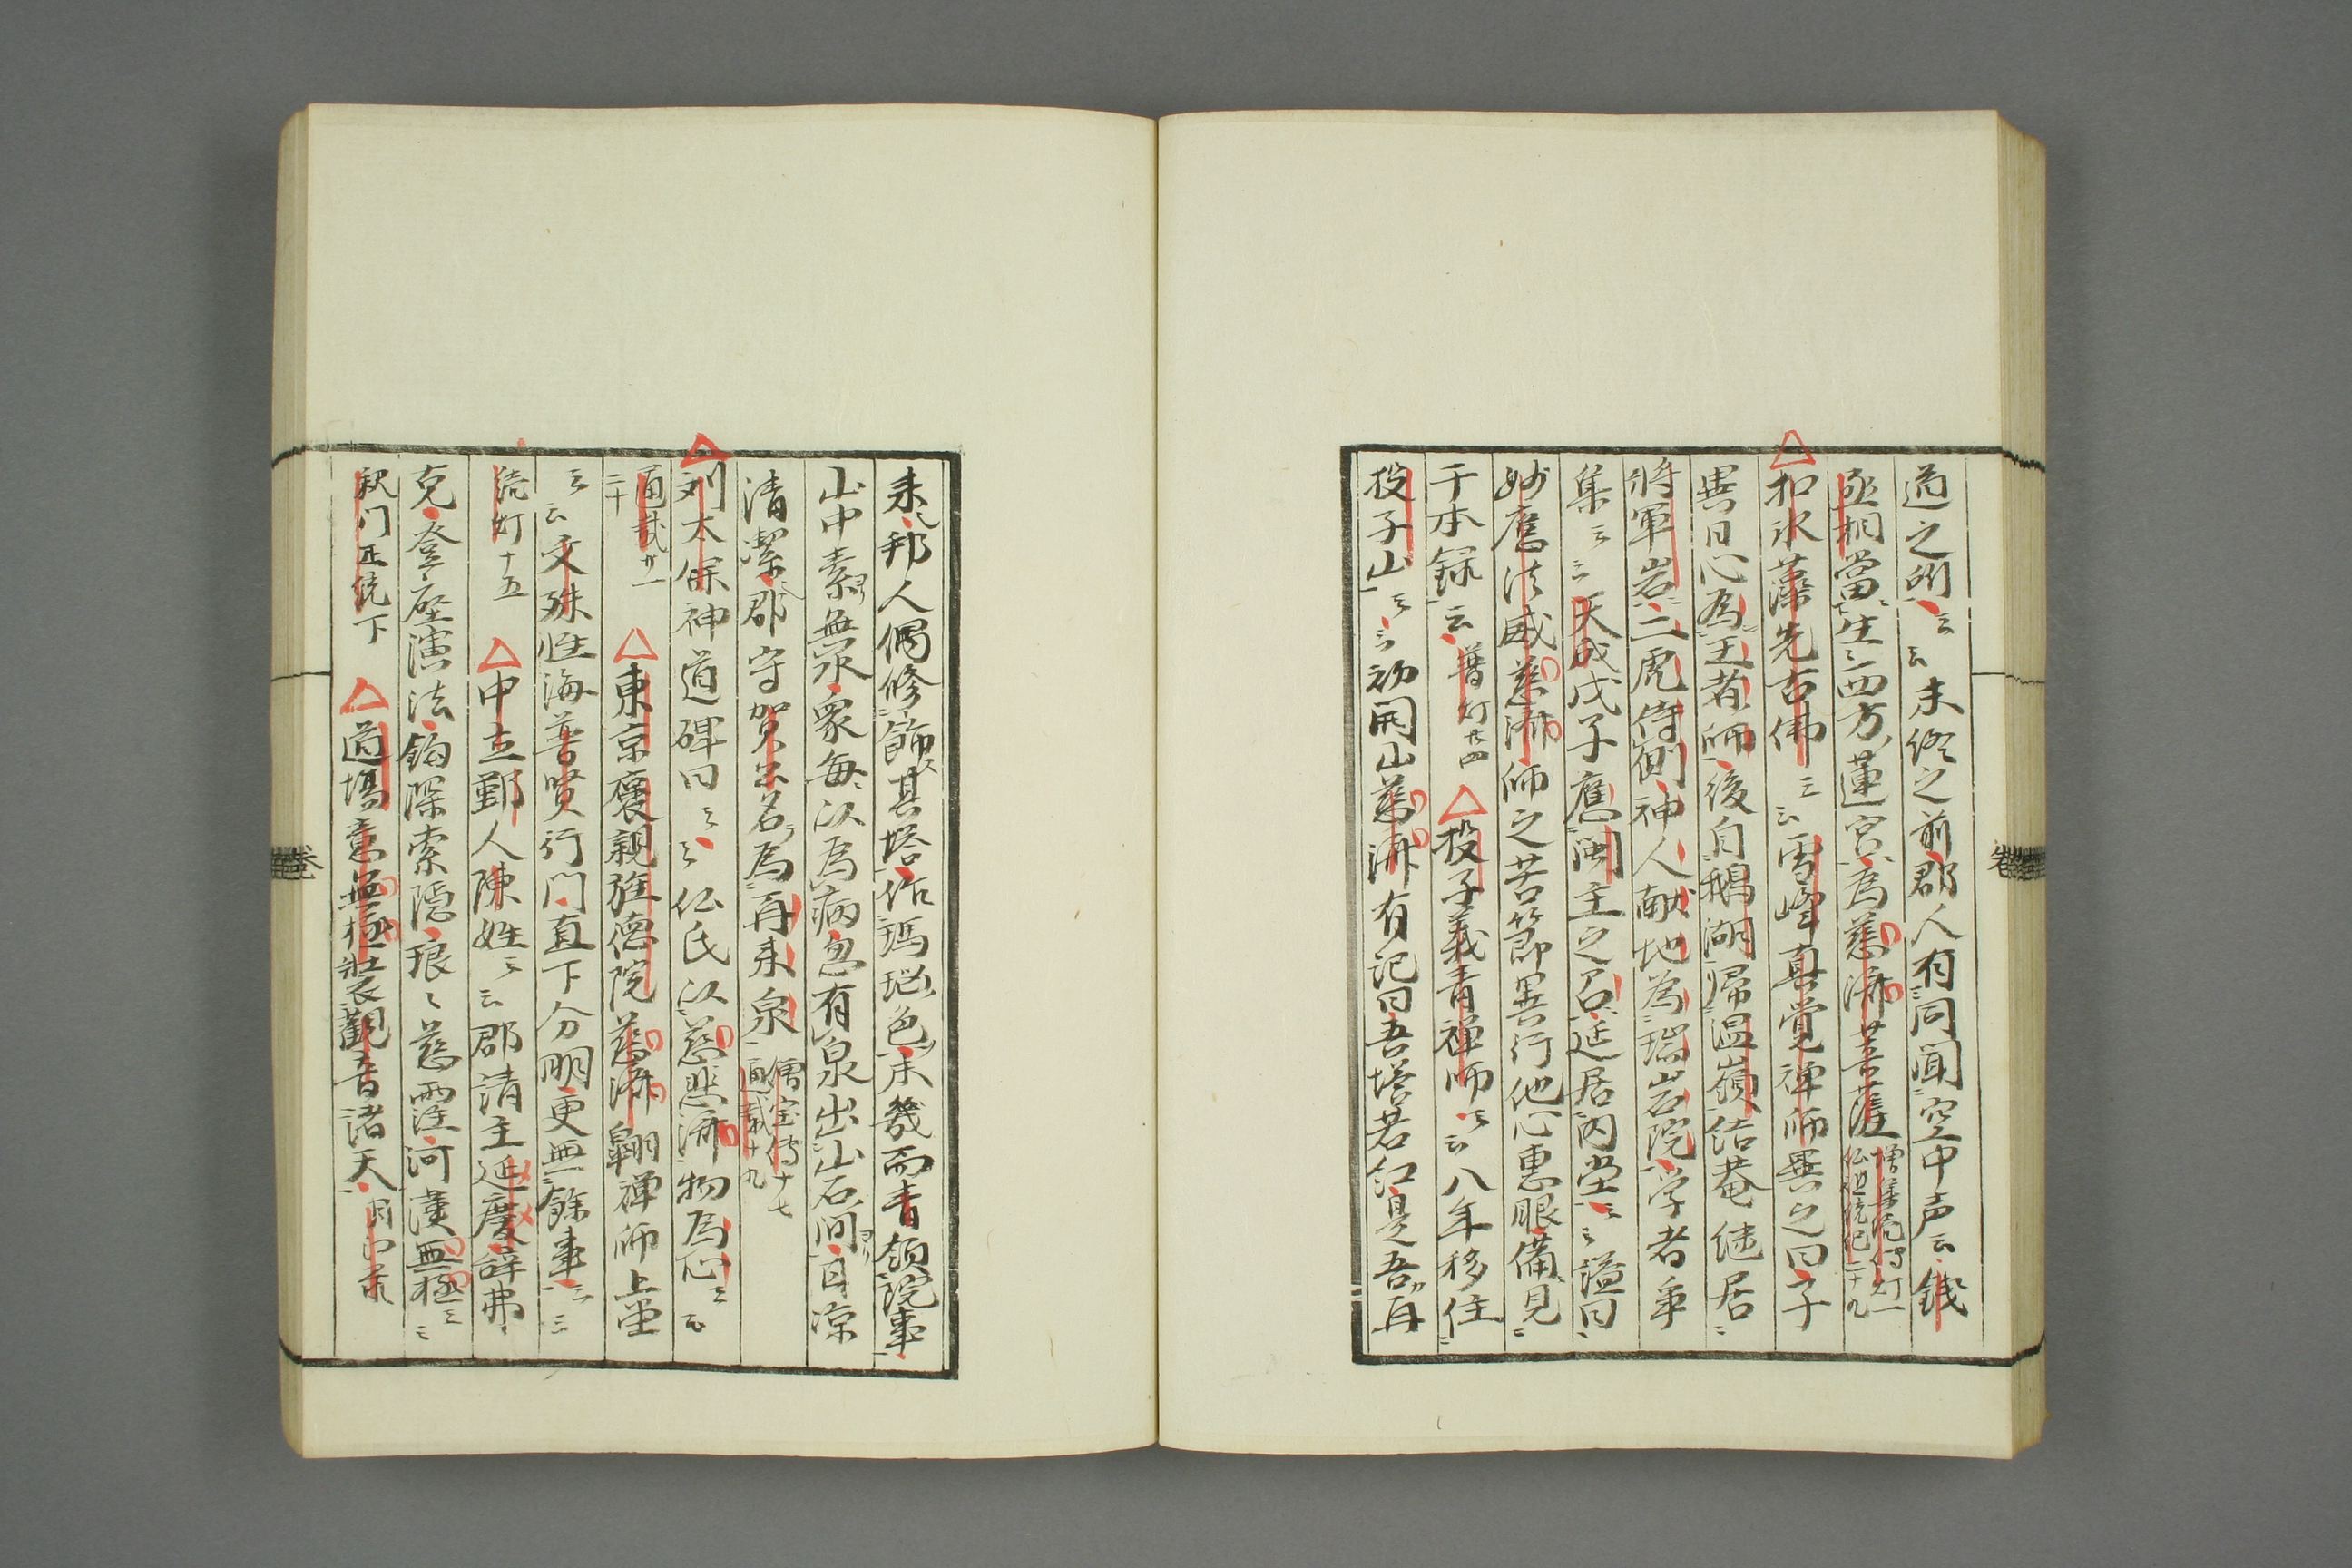 道之所云云未終之前郡人有同聞空中声云錢
丞相當生西方蓮宮為慈濟菩薩増集続傳灯一仏祖統紀二十九
扣氷藻先古佛云云雪峰真覚禅師異之曰子
異日心為王者師後自鵝湖帰温嶺結菴継居
將軍岩二虎侍側神人献地為瑞岩院学者爭
集云云天成戊子應閩主之召延居内堂云云謚曰
妙應法威慈濟師之苦節異行他心惠眼備見
于本録云普灯廿四投子義青禅師云云八年移住
投子山云云初開山慈濟有記曰吾塔若紅是吾再
来邦人偶修飾其塔作瑪瑙色未幾而青領院事
山中素無水衆毎以為病忽有泉出山石間甘凉
清潔郡守賀公名為再来泉僧宝傳十七通載十九
刘太保神道碑曰云云仏氏以慈悲濟物為心云云
通載廿一二十東京褒親旌徳院慈濟翺禅師上堂
云云文殊性海普賢行門直下分明更無餘事云云
続灯十五中立鄞人陳姓云云郡請主延慶辞弗
克登座演法鈎深索隠琅々慈霔河漢無極云云
釈门正統下道場意無極裝觀音諸天